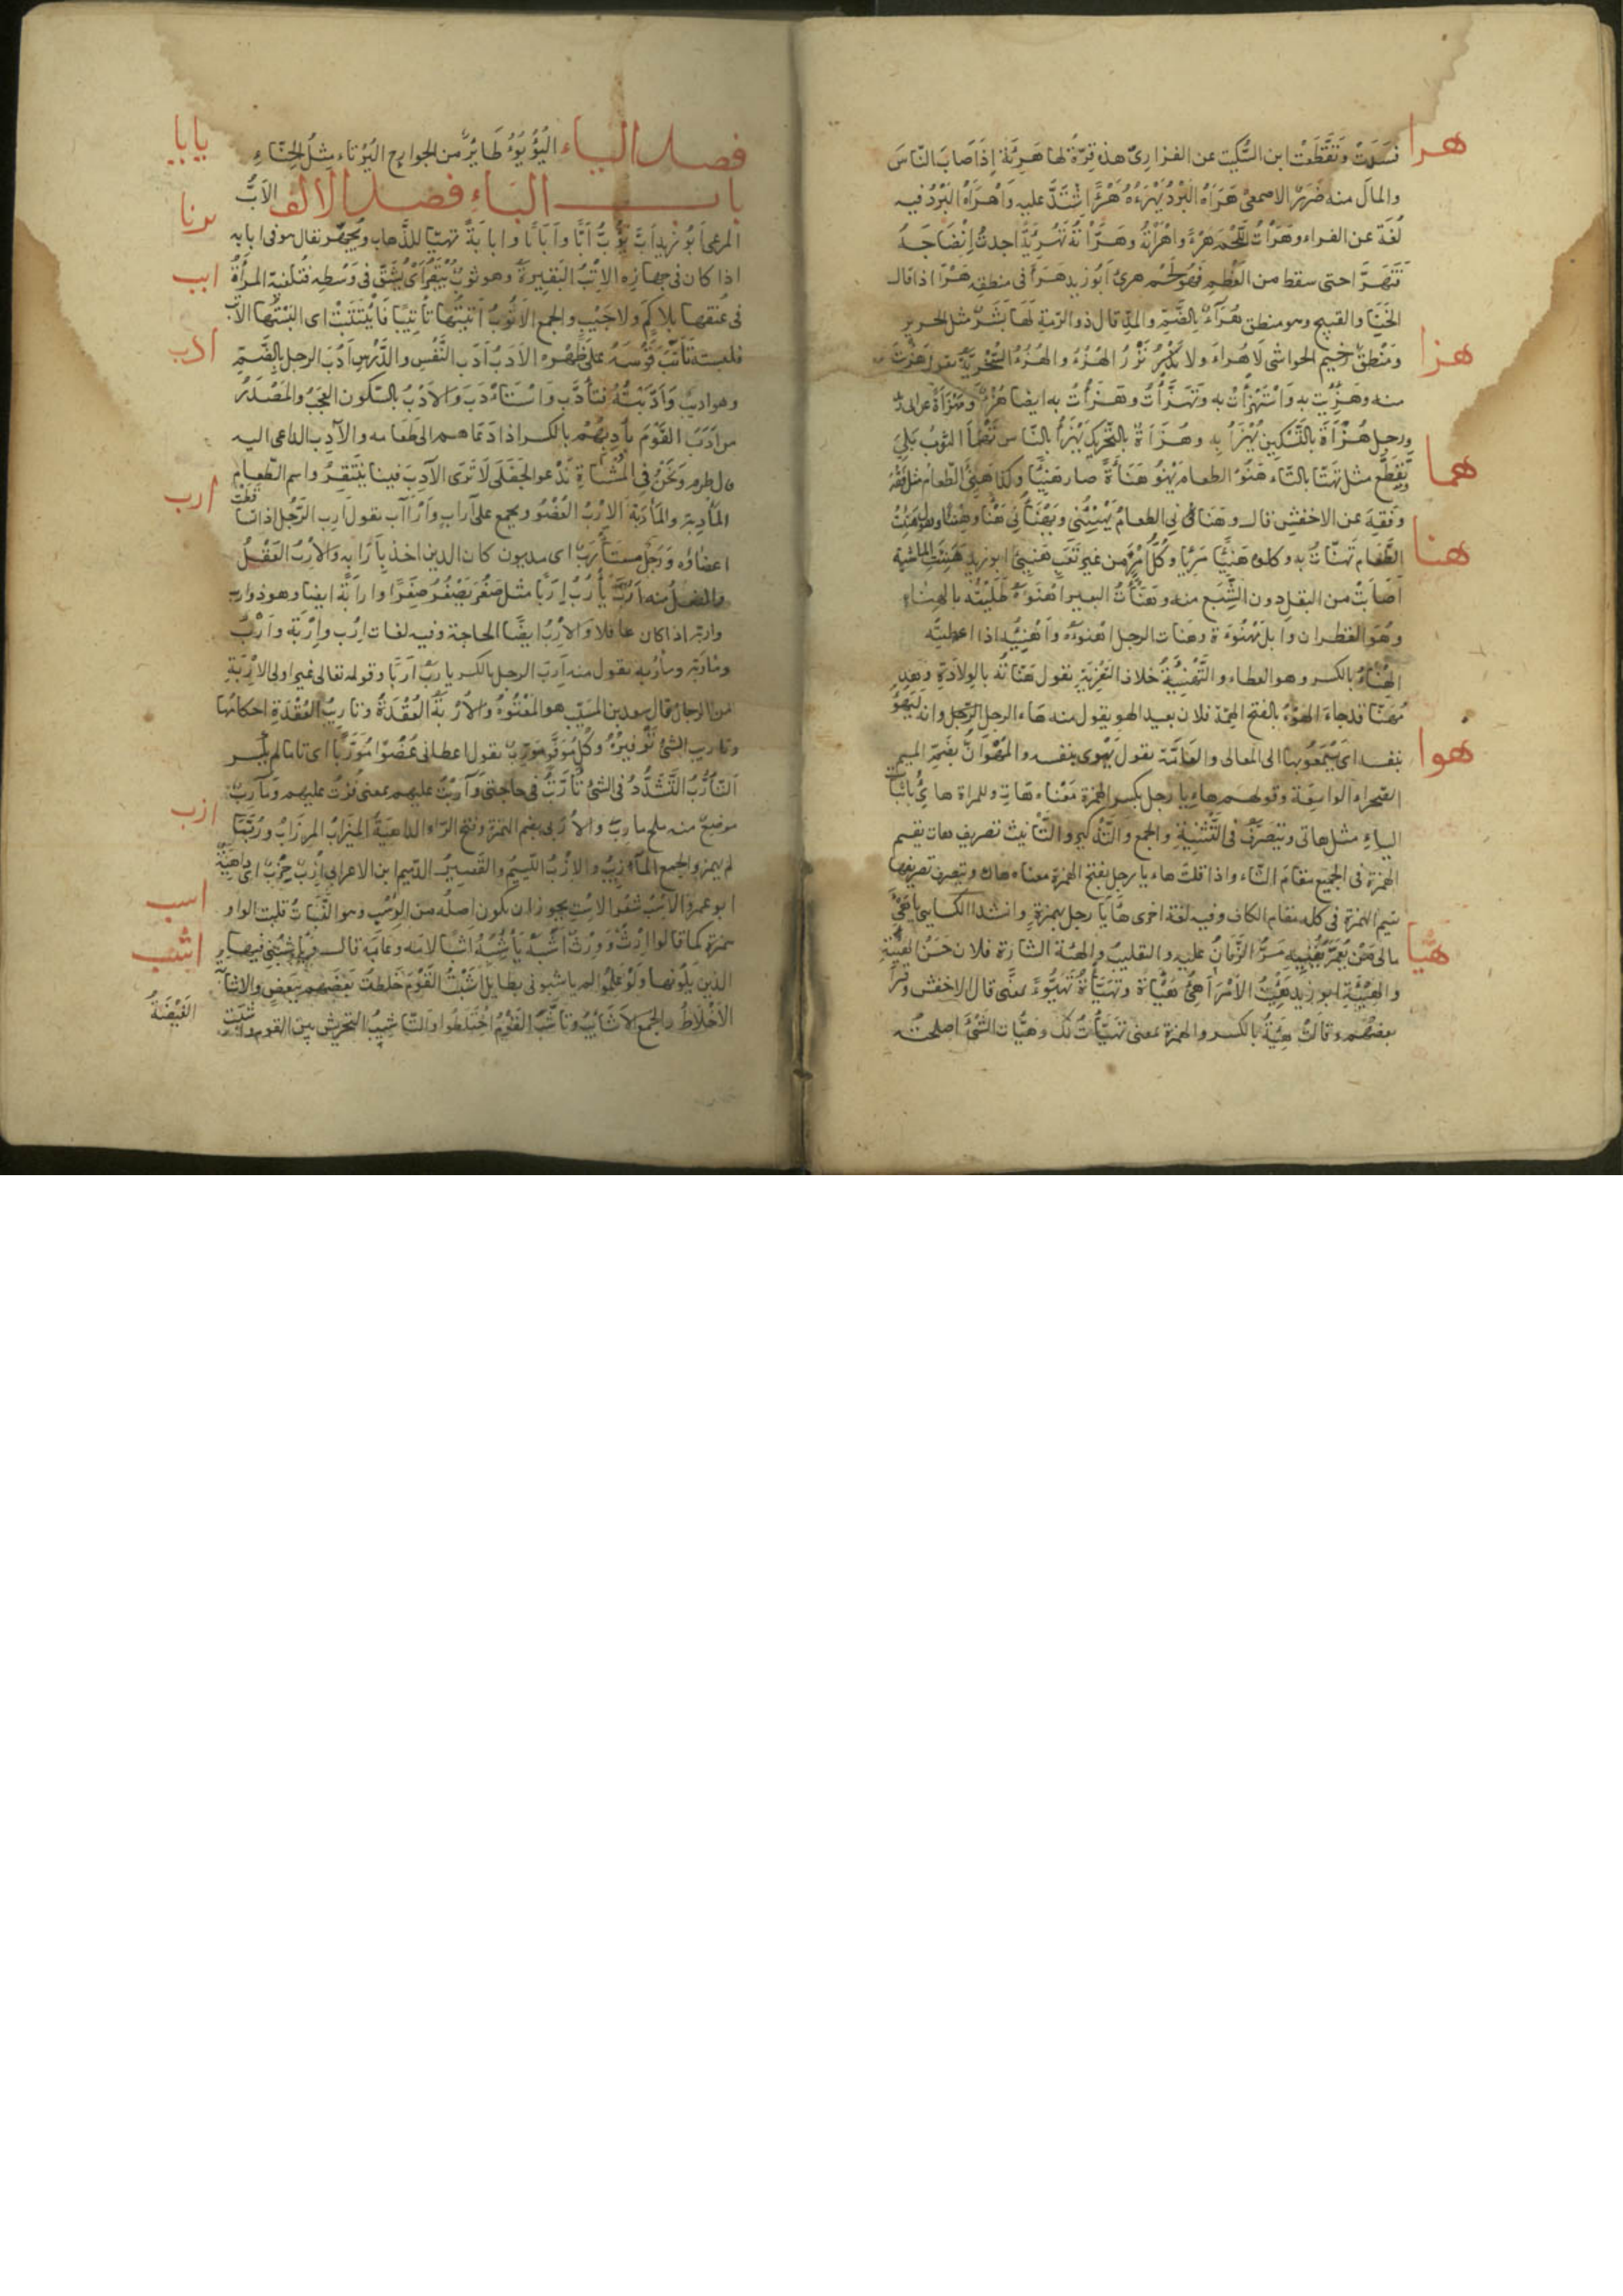 هرا
فسدت وتقطعت ابن السكيت عن الفزارى هذه قرة لها هريئة اذا اصاب الناس
والمال منه ضر الاصمعى هرأه البرد يهرءه هرأ اشتد عليه واهرأه البرد فيه
لغة عن الفراء وهرأت اللحم هرءا واهرأته وهرأته تهرئة اجدت انضاجه
فتهرأ حتى سقط من العظم فهو لحم هرئ ابو زيد هرأ فى منطقه هرأ اذا قال
الخنا والقبيح وهو منطق هراء بالضم والمد قال ذو الرمة لها بشر مثل الحرير
هزا
ومنطق رخيم الحواشى لا هراء ولا نزر الهزء والهزؤ السخرية تقول هزئت
منه وهزيت به واستهزأت به وتهزأت وهزأت به ايضا هزءا ومهزأة
ورجل هزأة بالتسكين يهزأ به وهزأة بالتحريك يهزأ بالناس تهمأ الثوب بلى
هما
وتقطع مثل تهتا بالتاء هنؤ الطعام يهنؤ هناءة صار هنيئا وكذا هنئ الطعام مثل فقه
وفقه عن الاخفش قال وهنانى الطعام يهنئنى ويهنأنى هنأ وهنأ
هنا
الطعام تهنأت به وكلوه هنيئا مريا وكل امر من غير تعب هنيئ ابو زيد هنئت الماشية
اصابت من البقل دون الشبع منه وهنأت البعير اهنؤه طليته بالهناء
وهو القطران وابل مهنوءة وهنات الرجل اهنوءه واهنيه اذا اعطيته
الهنأ بالكسر وهو العطاء والتهنئة خلاف التعزية تقول هناته بالولادة وهذا
مهنا قد جاء الهوء بالفتح الهمة فلان بعيد الهو يقول منه هاء الرجل الرجل وانه ليهؤ
هوا
بنفسه اى يسمو بها الى المعالى والعامة تقول يهوى بنفسه والمهوأن بضم الميم
الصحراء الواسعة وقولهم هاء يا رجل بكسر الهمزة معناه هات وللمراة هائى باثبات
الياء مثل هاتى وتصرف فى التثنية والجمع والتذكير والتأنيث تصريف هات تقيم
الهمزة فى الجميع مقام التاء واذا قلت هاء يا رجل بفتح الهمزة معناه هاك وتصرف تصريفها
تقيم الهمزة فى كله مقام الكاف وفيه لغة اخرى هأ يا رجل بهمزة وانشد الكسائى
هيا
مالى من يعمر يفنيه مر الزمان عليه والتقليب والهيئة الشارة فلان حسن الهيئة
والهيئة ابو زيد هيئت الامر اهئ هيأة وتهيأة تهيؤا بمعنى قال الاخفش وقرأ
بعضهم وقالت هئت بالكسر والهمزة بمعنى تهيأت لك وهيأت الشئ اصلحته
يايا
فصل الياء اليؤيؤ طاير من الجوارح اليرناء مثل الحناء
يرنا
باب الباء فصل الالف الاب
المرعى ابو زيد اب يؤب ابا وابابا وابابة تهيا للذهاب وتجهز يقال هو فى ابابه
ابب
اذا كان فى جهازه الاتب البقيرة وهو ثوب يبقر اى يشق فى وسطه فتلقيه المرأة
فى عنقها بلا كم ولا جيب والجمع الاتوب اتبتها تاتيبا فأتتبت اى البستها الاتب
ادب
فلبسته تأتب قوسه على ظهره الادب ادب النفس والدرس ادب الرجل بالضم
وهو اديب وادبته فتأدب واستأدب والادب بالسكون العجب والمصدر
من ادب القوم يأدبهم بالكسر اذا دعاهم الى طعامه والآدب الداعى اليه
قال طرفة ونحن فى المشتاة ندعو الجفلى لا ترى الآدب فينا ينتقر واسم الطعام
ارب
المأدبة والمأدبة الارب العضو ويجمع على آراب وأرآب تقول ارب الرجل اذا تساقطت
اعضاؤه ورجل مستأرب اى مديون كان الدين اخذ بآرابه والارب العقل
والفعل منه ارب يأرب اربا مثل صغر يصغر صغرا وارابة ايضا وهو ذو ارب
واربة اذا كان عاقلا والارب ايضا الحاجة وفيه لغات ارب واربة وارب
ومأربة ومأربة تقول منه ارب الرجل بالكسر يأرب اربا وقوله تعالى غير اولى الاربة
من الرجال قال سعيد بن المسيب هو المعتوه والاربة العقدة وتأريب العقدة احكامها
وتأريب الشئ توفيره وكل موفر مؤرب تقول اعطانى عضوا مؤربا اى تاما لم يكسر
التأرب التشدد فى الشئ تأربت فى حاجتى وآربت عليهم بمعنى فزت عليهم ومآرب
ازب
موضع منه ملح مارب والاربى بضم الهمزة وفتح الراء الداهية الميزاب المرزاب وربما
لم يهمز والجمع المآزيب والازب اللئيم والقصير الدميم ابن الاعرابى ازب حزب اى داهية
اسب
ابو عمرو الاسب شعر الاست يجوز ان يكون اصله من الوسب وهو النبات قلبت الواو
اشب
همزة كما قالوا ارث وورث اشبه يأشبه اشبا لامه وعابه قال ويأشبنى فيها
الذين يلونها ولو علموا لم ياشبونى بطايل اشبت القوم خلطت بعضهم ببعض والاشابة
الاخلاط والجمع الاشائب وتأشب القوم اختلطوا والتأشيب التحريش بين القوم اشبت
الغيضة